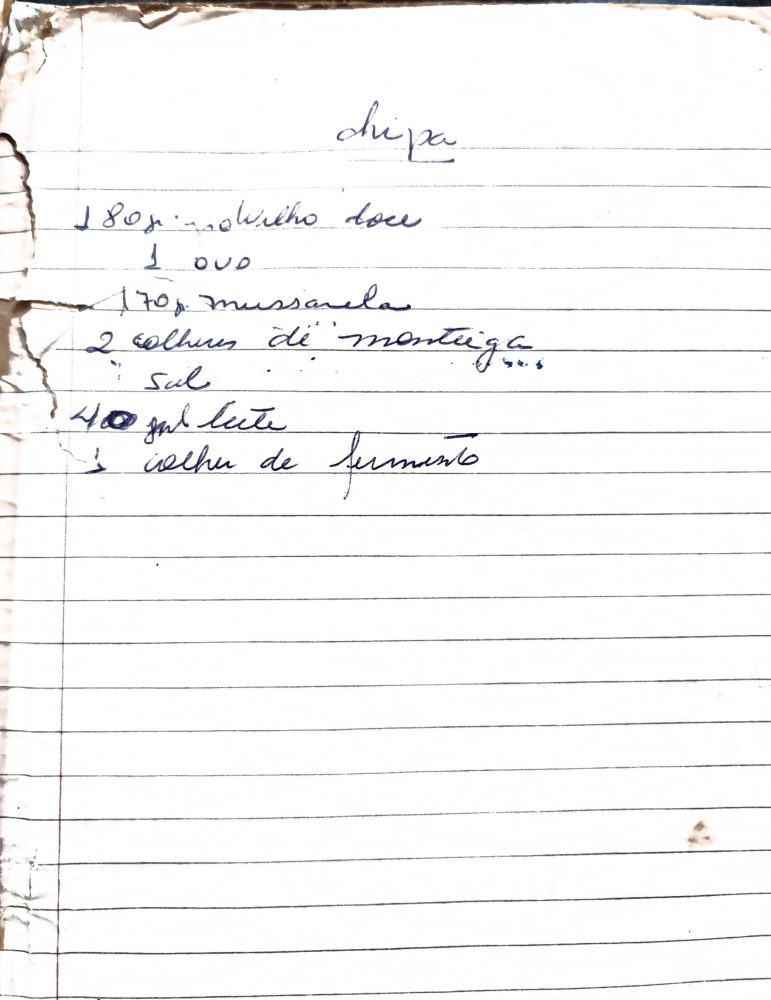 chipa
180g polvilho doce
1 ovo
170g mussarela
2 colheres de manteiga
sal
40 ml leite
1 colher de fermento